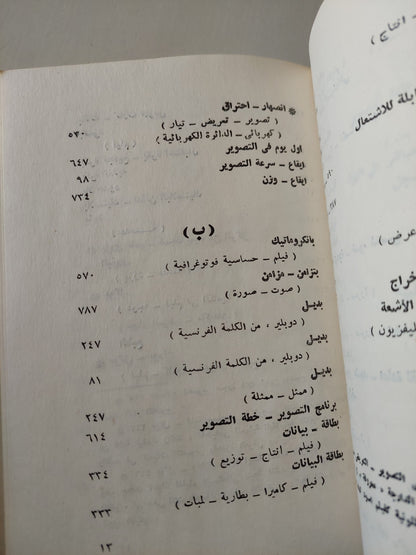 * انصهار – احتراق
( تصوير – تعريض – تيار
كهربائى – الدائرة الكهربائية ) ٥٣٠
اول يوم فى التصوير ٦٤٧
إيقاع – سرعة التصوير ٩٨
إيقاع – وزن ٧٣٤
(ب)
بانكروماتيك
( فيلم – حساسية فوتوغرافية ) ٥٧٠
بتزامن – متزامن
( صوت – صورة ) ٧٨٧
بديل
( دوبلير ، من الكلمة الفرنسية ) ٢٤٧
بديل
( دوبلير ، من الكلمة الفرنسية ) ٨١
بديل
( ممثل – ممثلة ) ٢٤٧
برنامج التصوير – خطة التصوير ٦١٤
بطاقة – بيانات
( فيلم – انتاج – توزيع ) ٣٣٤
بطاقة البيانات
( فيلم – كاميرا – بطارية – لمبات ) ٣٣٣
١٣
– انتاج )
للاشتعال
عرض )
الأشعة